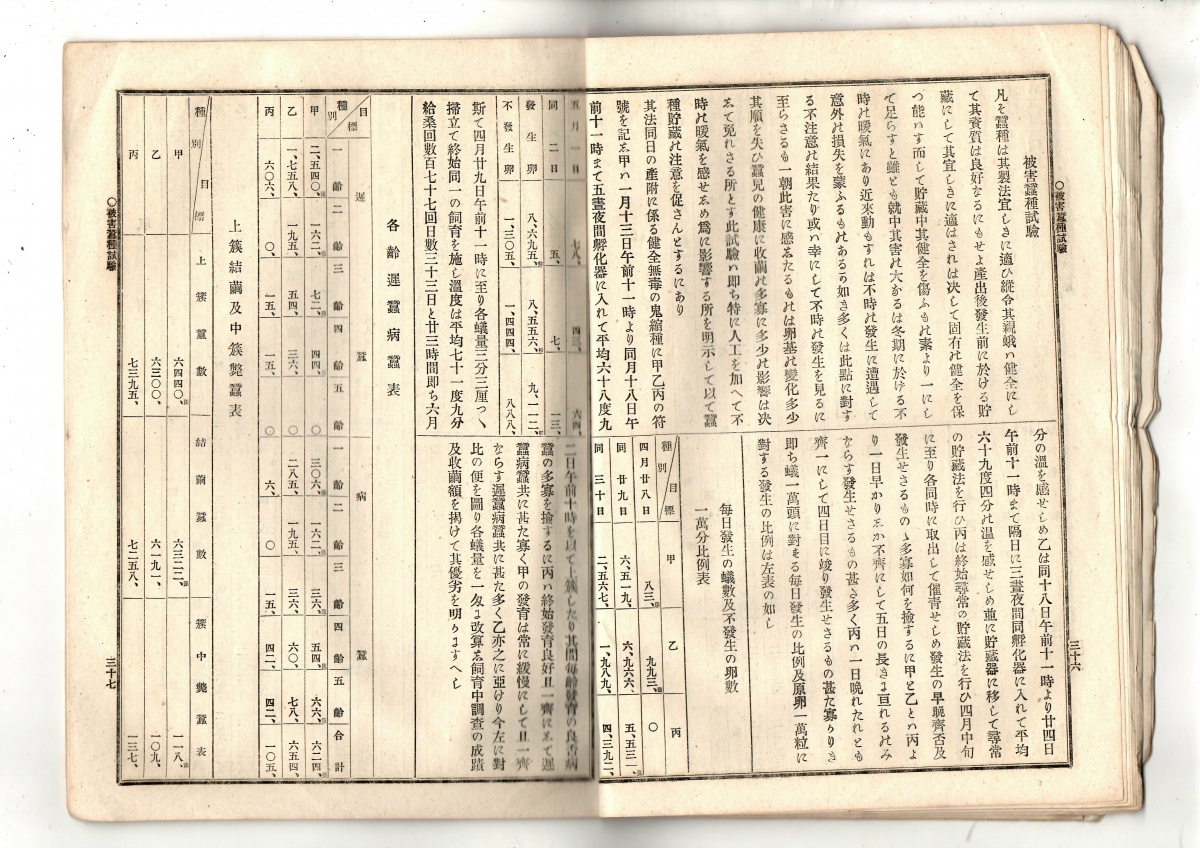 ○被害蠶種試驗
三十六
被害蠶種試驗
凡そ蠶種は其製法宜しきに適ひ縱令其親蛾の健全にし
て其資質は良好なるにもせよ產出後發生前に於ける貯
藏にして其宜しきに適はされは决して固有の健全を保
つ能はす而して貯藏中其健全を傷ふもの素より一にし
て足らすと雖とも就中其害の大なるは冬期に於ける不
時の暖氣にあり近來動もすれは不時の發生に遭遇して
意外の損失を蒙ふるものあるか如き多くは此點に對す
る不注意の結果たり或ハ幸にして不時の發生を見るに
至らさるも一朝此害に感したるものは卵基の變化多少
其順を失ひ蠶兒の健康に收繭の多寡に多少の影響は决
して免れさる所とす此試驗ハ即ち特に人工を加へて不
時の暖氣を感せしめ爲に影響する所を明示して以て蠶
種貯藏の注意を促さんとするにあり
其法同日の產附に係る健全無毒の鬼縮種に甲乙丙の符
號を記し甲ハ一月十三日午前十一時より同月十八日午
前十一時まて五晝夜間孵化器に入れて平均六十八度九
分の溫を感せしめ乙は同十八日午前十一時より廿四日
午前十一時まて隔日に三晝夜間同孵化器に入れて平均
六十九度四分の溫を感せしめ並に貯藏器に移して尋常
の貯藏法を行ひ丙は終始尋常の貯藏法を行ひ四月中旬
に至り各同時に取出して催靑せしめ發生の早晩齊否及
發生せさるものゝ多寡如何を撿するに甲と乙とハ丙よ
り一日早かりしか不齊にして五日の長きに亘れるのみ
ならす發生せさるもの甚さ多く丙ハ一日晩れたれとも
齊一にして四日に竣り發生せさるもの甚た寡かりき
即ち蟻一萬頭に對する每日發生の比例及原卵一萬粒に
對する發生の比例は左表の如し
每日發生の蟻數及不發生の卵數
一萬分比例表
種別 目標 甲 乙 丙
四月廿八日 八三、 九九三、 〇
同廿九日 六、五一九、 六、九六六、 五、五三一、
同三十日 二、五六七、 一、九八九、 四、三九二、
五月一日 七八、 四三、 六四、
同二日 五、 七、 一三、
發生卵 八、六九五、 八、五五六、 九、一一二、
不發生卵 一、三〇五、 一、四四四、 八八八、
斯て四月廿九日午前十一時に至り各蟻量三分三厘つゝ
掃立て終始同一の飼育を施し溫度は平均七十一度九分
給桑回數百七十七回日數三十三日と廿三時間即ち六月
二日午前十時を以て上簇したり其間每齡發育の良否病
蠶の多寡を撿するに丙の終始發育良好且一齊にして遲
蠶病蠶共に甚た寡く甲の發育は常に緩慢にして且一齊
ならす遲蠶病蠶共に甚た多く乙亦之に亞けり今左に對
比の便を圖り各蟻量を一匁に改算し飼育中調査の成蹟
及收繭額を揭けて其優劣を明かにすへし
各齡遲蠶病蠶表
種別 目標 遲蠶 一齡 二齡 三齡 四齡 五齡 病蠶 一齡 二齡 三齡 四齡 五齡 合計
甲 二、五四〇、 一六二、 七二、 四四、 〇 三〇六、 一六二、 三六、 五四、 六六、 六二四、
乙 一、七五八、 一九五、 五四、 三六、 〇 二八五、 一九五、 三六、 六〇、 七八、 六五四、
丙 六〇六、 〇、 一五、 一五、 〇 六、 〇 一五、 四二、 四二、 一〇五、
上簇結繭及中簇斃蠶表
種別 目標 上簇蠶數 結繭蠶數 簇中斃蠶表
甲 六四四〇、 六三二二、 一一八、
乙 六三〇〇、 六一九一、 一〇九、
丙 七三九五、 七二五八、 一三七、
○被害蠶種試驗
三十七